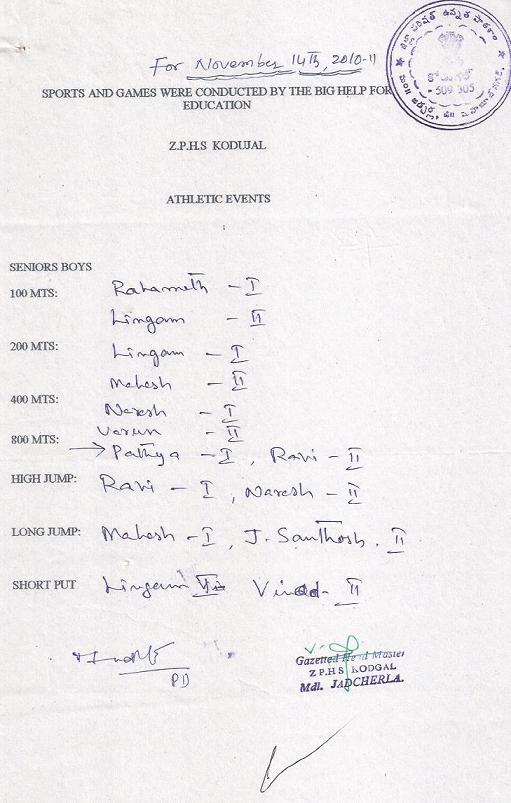 For November 14th, 2010-11
SPORTS AND GAMES WERE CONDUCTED BY THE BIG HELP FOR
EDUCATION
509 305
Z.P.H.S KODUJAL
ATHLETIC EVENTS
SENIORS BOYS
100 MTS: Rahameth - I
Lingam - II
200 MTS: Lingam - I
Mahesh - II
400 MTS: Naresh - I
Varun - II
800 MTS: → Pathya - I, Ravi - II
HIGH JUMP: Ravi - I, Naresh - II
LONG JUMP: Mahesh - I, J. Santhosh. II
SHORT PUT Lingam Vinod- II
PD
Gazetted Head Master
Z.P.H.S KODGAL
Mdl. JADCHERLA.